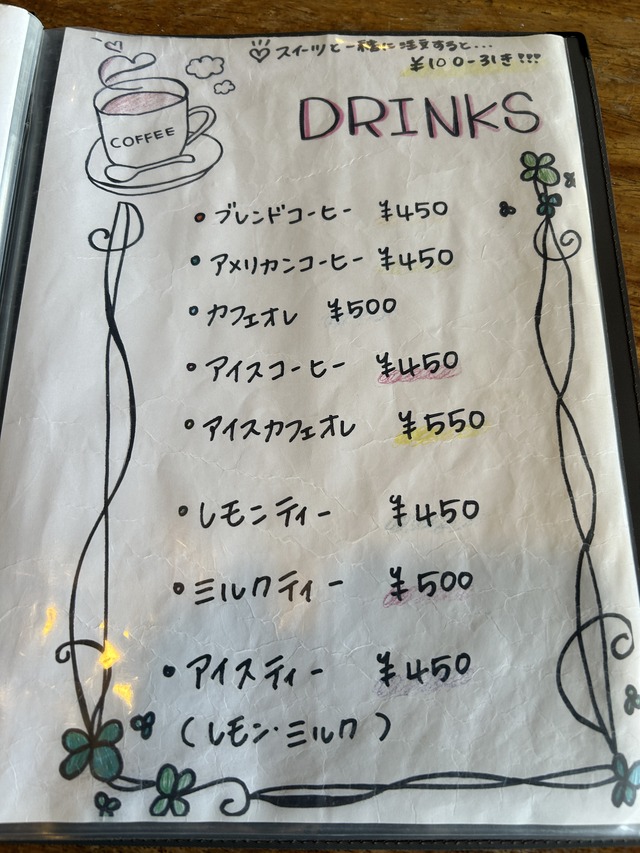 スイーツと一緒に注文すると...
¥100-引き!!!
COFFEE
DRINKS
・ブレンドコーヒー ¥450
・アメリカンコーヒー ¥450
・カフェオレ ¥500
・アイスコーヒー ¥450
・アイスカフェオレ ¥550
・レモンティー ¥450
・ミルクティー ¥500
・アイスティー ¥450
(レモン・ミルク)